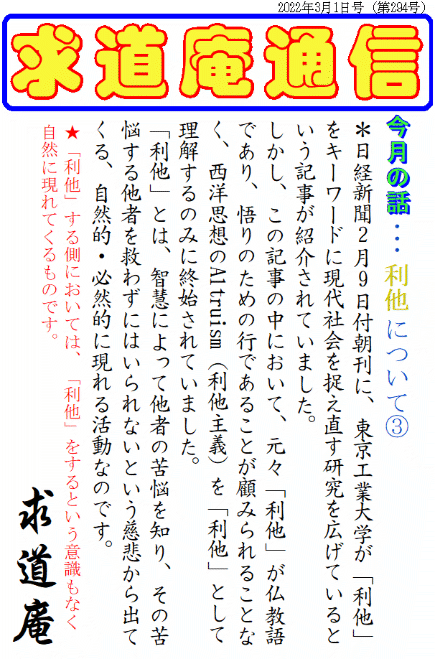 2022年3月1日号（第294号）
求道庵通信
今月の話…利他について③
＊日経新聞2月9日付朝刊に、東京工業大学が「利他」
をキーワードに現代社会を捉え直す研究を広げていると
いう記事が紹介されていました。
しかし、この記事の中において、元々「利他」が仏教語
であり、悟りのための行であることが顧みられることな
く、西洋思想のAltruism（利他主義）を「利他」として
理解するのみに終始されていました。
「利他」とは、智慧によって他者の苦悩を知り、その苦
悩する他者を救わずにはいられないという慈悲から出て
くる、自然的・必然的に現れる活動なのです。
★「利他」する側においては、「利他」をするという意識もなく
自然に現れてくるものです。
求道庵